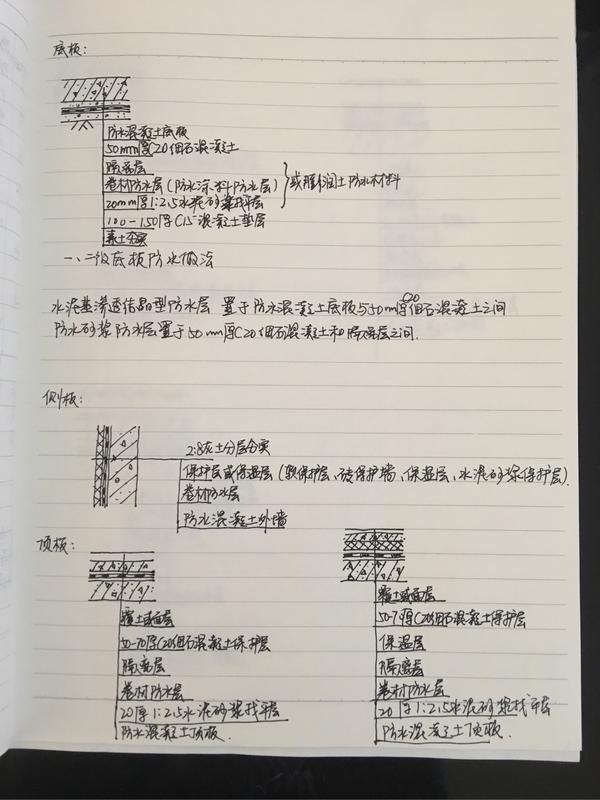 底板:
防水混凝土底板
50mm厚C20细石混凝土
隔离层
卷材防水层(防水涂料防水层)
或膨润土防水材料
20mm厚1:2.5水泥砂浆找平层
100-150厚C15混凝土垫层
素土夯实
一、二级底板防水做法
水泥基渗透结晶型防水层 置于防水混凝土底板与50m厚C20细石混凝土之间
防水砂浆防水层置于50mm厚C20细石混凝土和隔离层之间.
侧板:
2:8灰土分层夯实
保护层或保温层(软保护层、砖保护墙、保温层、水泥砂浆保护层).
卷材防水层
防水混凝土外墙
顶板:
覆土或面层
50-70厚C20细石混凝土保护层
隔离层
卷材防水层
20厚1:2.5水泥砂浆找平层
防水混凝土顶板.
覆土或面层
50-7厚C20细石混凝土保护层
保温层
隔离层
卷材防水层
20厚1:2.5水泥砂浆找平层
防水混凝土顶板.